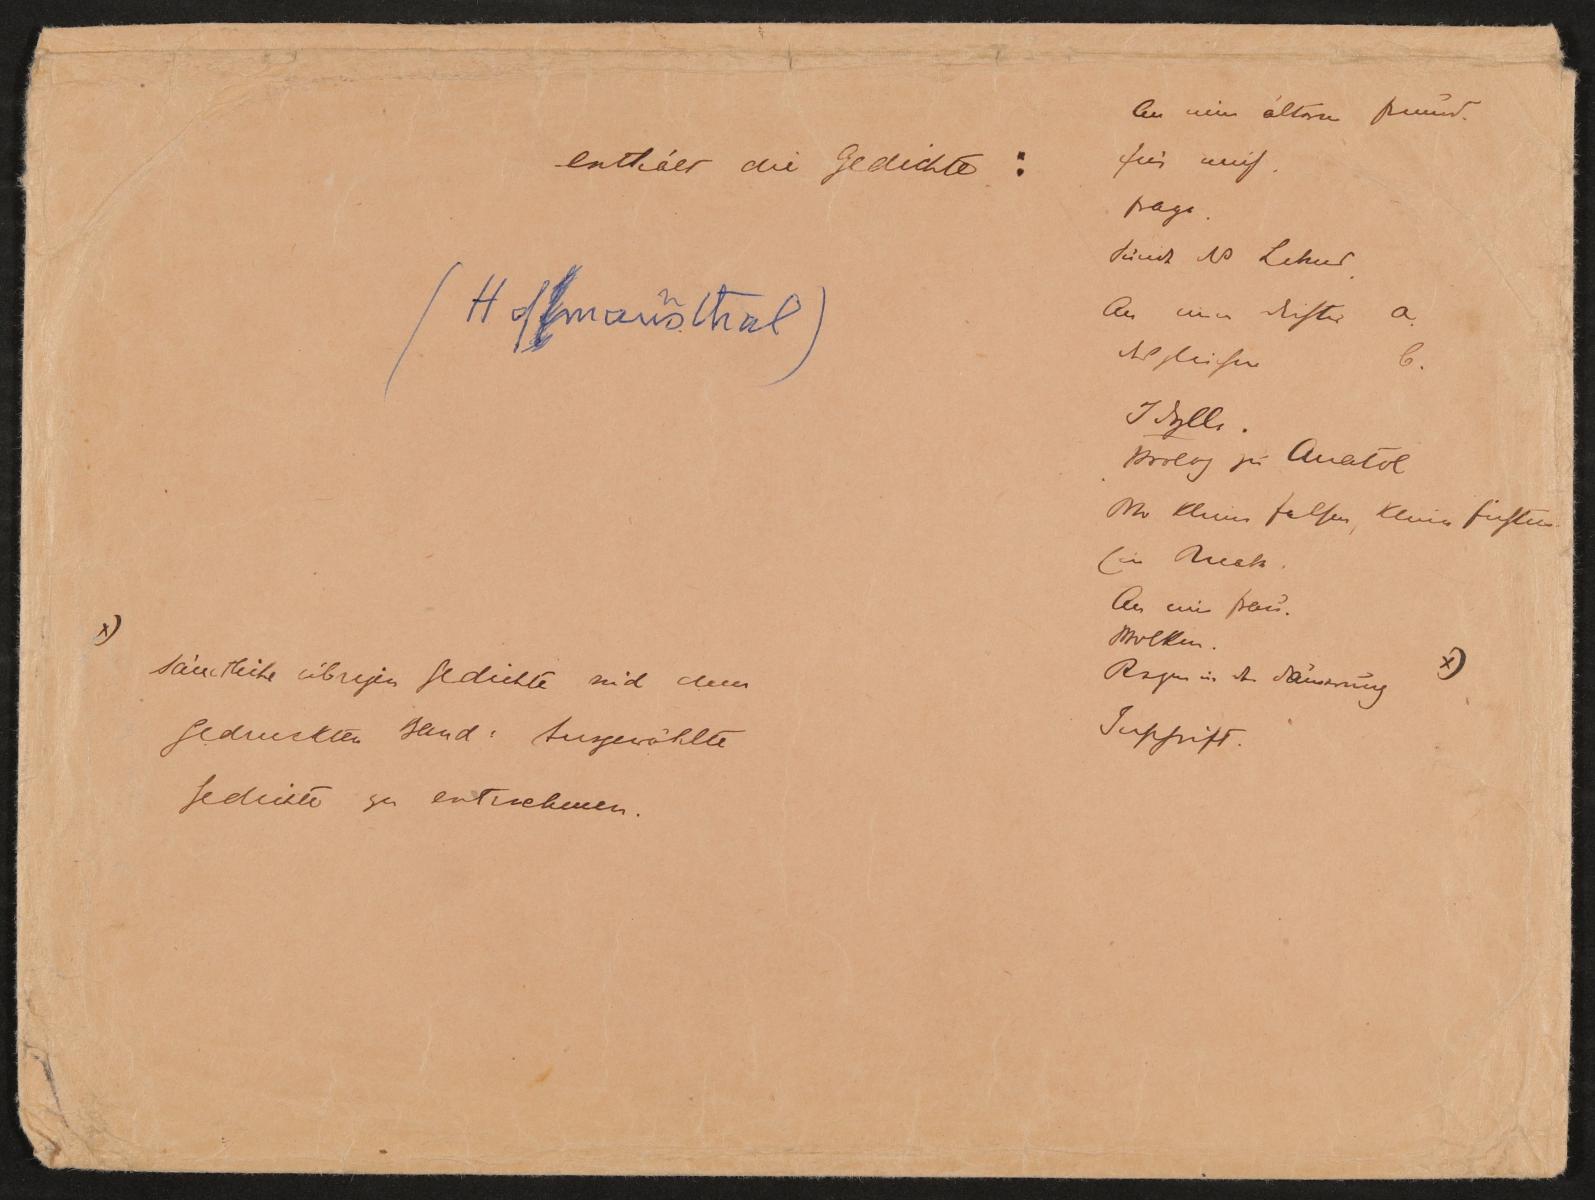 enthält die Gedichte :
(Hofmañsthal)
An einen älteren Freund.
Für mich.
Frage.
Sünde des Lebens
An eine a.
desgleichen b.
Idylle.
Prolog zu Anatol
Wo kleine Felsen, kleine Fichten
(ein Knabe.
An eine Frau.
Wolken.
Regen in der Dämmerung x)
Inschrift.
x)
Sämtliche übrigen Gedichte sind dem
gedruckten Band: Ausgewählte
Gedichte zu entnehmen.